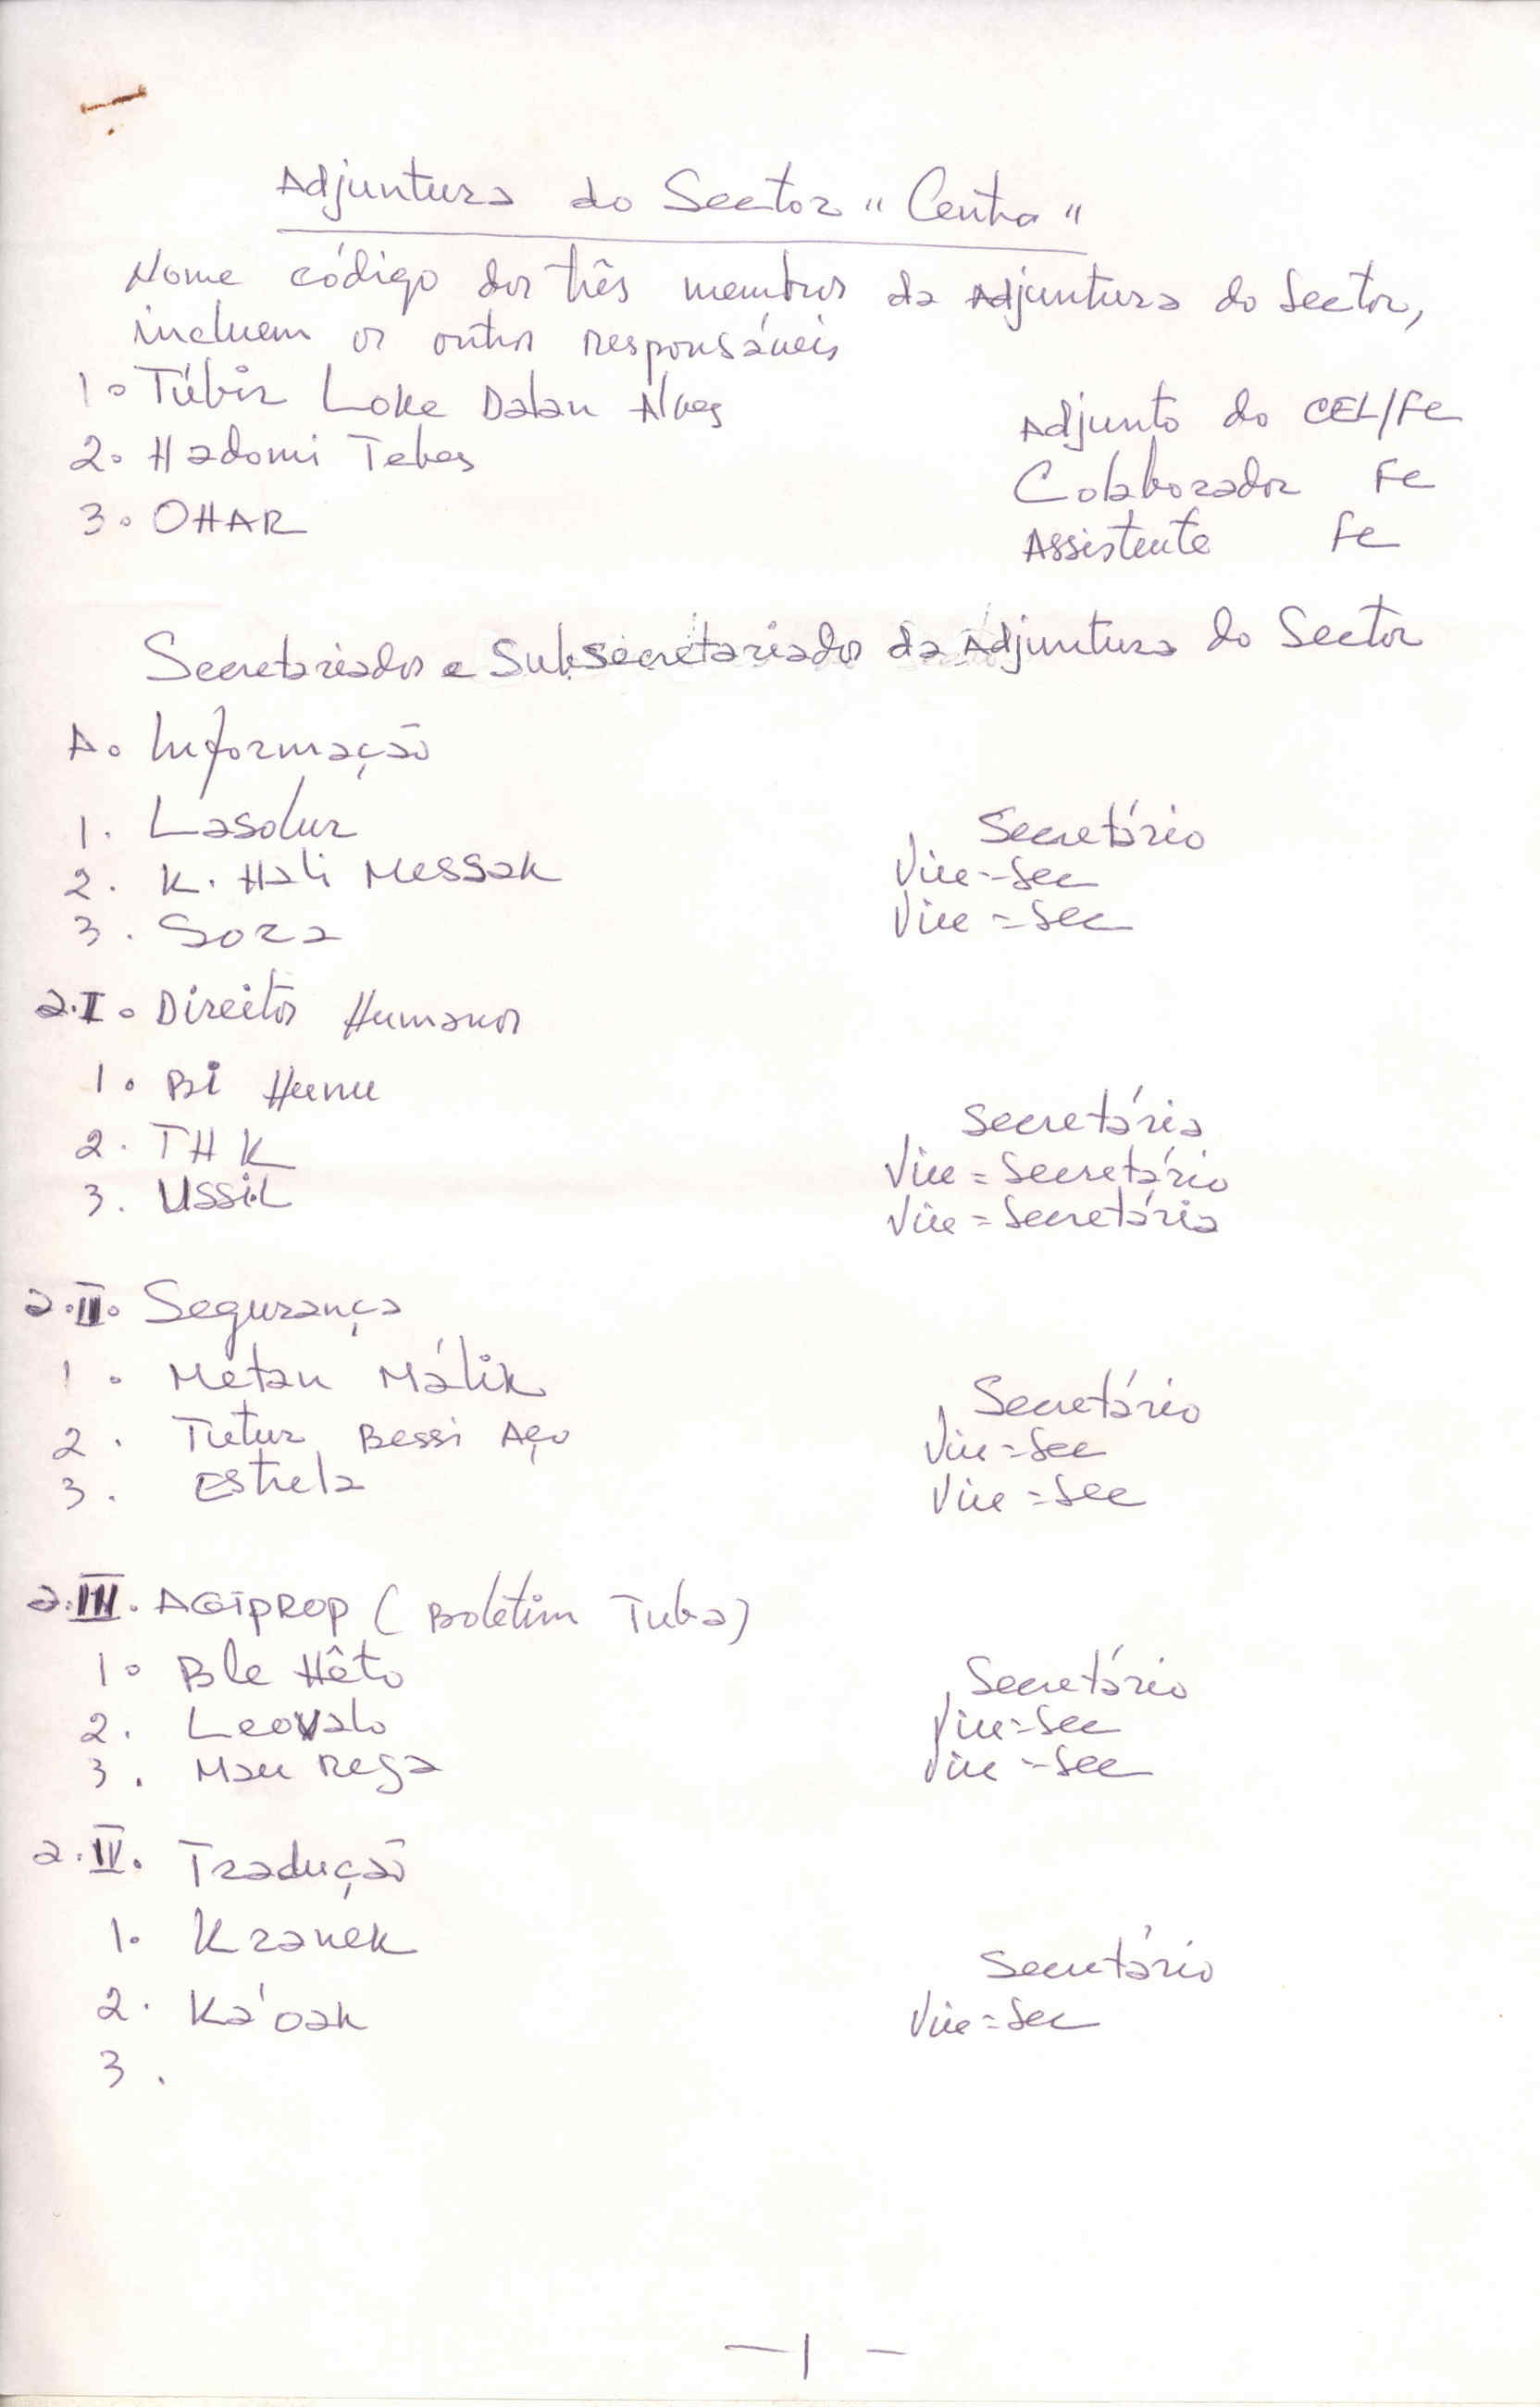 Adjuntura do Sector "Centro"
Nome código dos três membros da Adjuntura do Sector,
incluem os outros responsáveis
1. Túbir Loke Dalan Alves Adjunto do CEL/FC
2. Hadomi Tebes Colaborador FC
3. OHAR Assistente FC
Secretariados e Subsecretariados da Adjuntura do Sector
A. Informação
1. Lasolur Secretário
2. K. Hali Messak Vice-Sec
3. Sora Vice=Sec
a.I. Direitos Humanos
1. Bi Hunu Secretária
2. THK Vice=Secretário
3. Ussil Vice=Secretária
a.II. Segurança
1. Metan Málik Secretário
2. Tutur Bessi Aço Vice=Sec
3. Estrela Vice=Sec
a.III. AGIPROP (Boletim Tuba)
1. Ble Hêto Secretário
2. Leovalo Vice=Sec
3. Mau Rega Vice=Sec
a.IV. Tradução
1. Kranek Secretário
2. Ká'oak Vice=Sec
3.
—1-